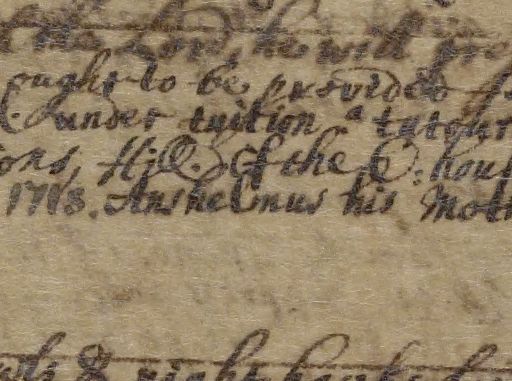 the Lord, he will pre
ought to be provided f
under tuition a tutour
ions, H:Q. If the Q: hous
1718. Anshelmus his Moth
& right